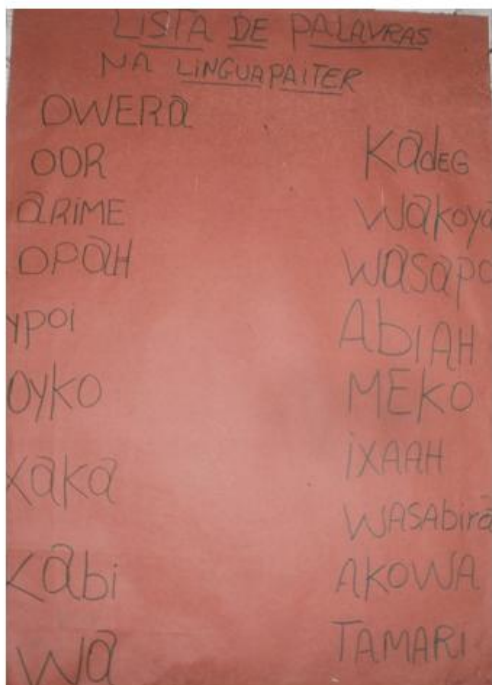 LISTA DE PALAVRAS
NA LINGUAPAITER
OWERa
OOR
aRIME
OPaH
ypoi
OYKO
Xaka
Xabi
Wa
KadEG
Wakoya
WaSapo
AbiAH
MEKO
iXAAH
WASAbira
AKOWA
TAMARi